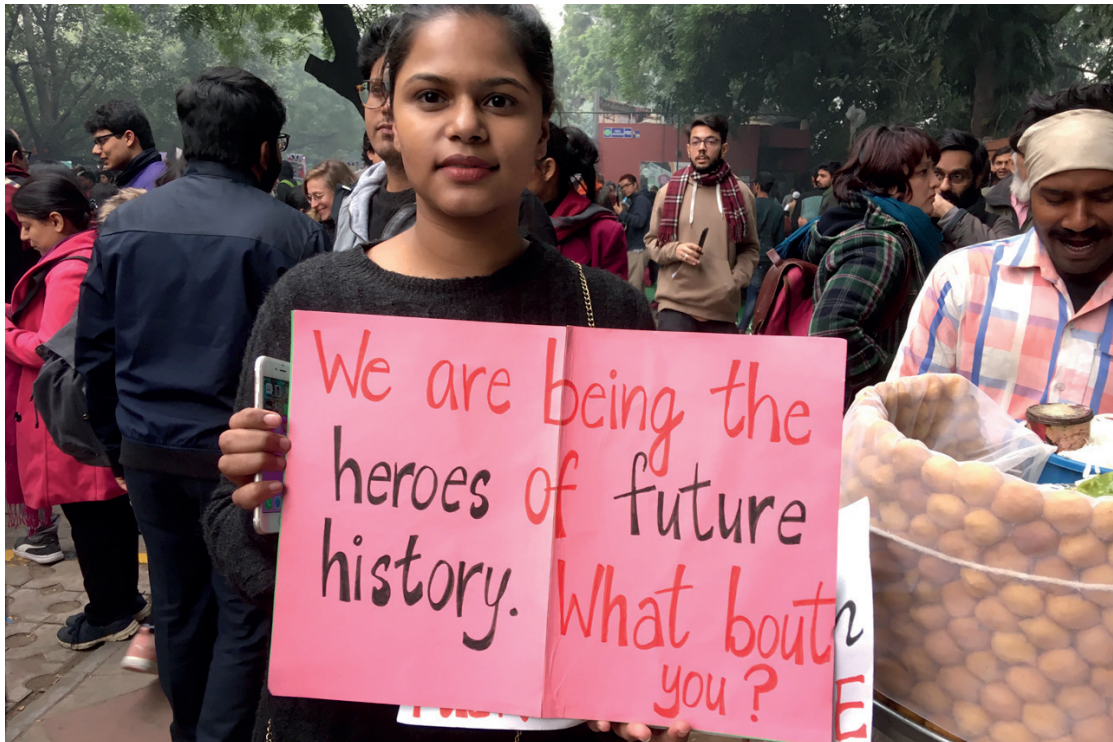 We are being the
heroes of future
history. What bout
you?
n
E